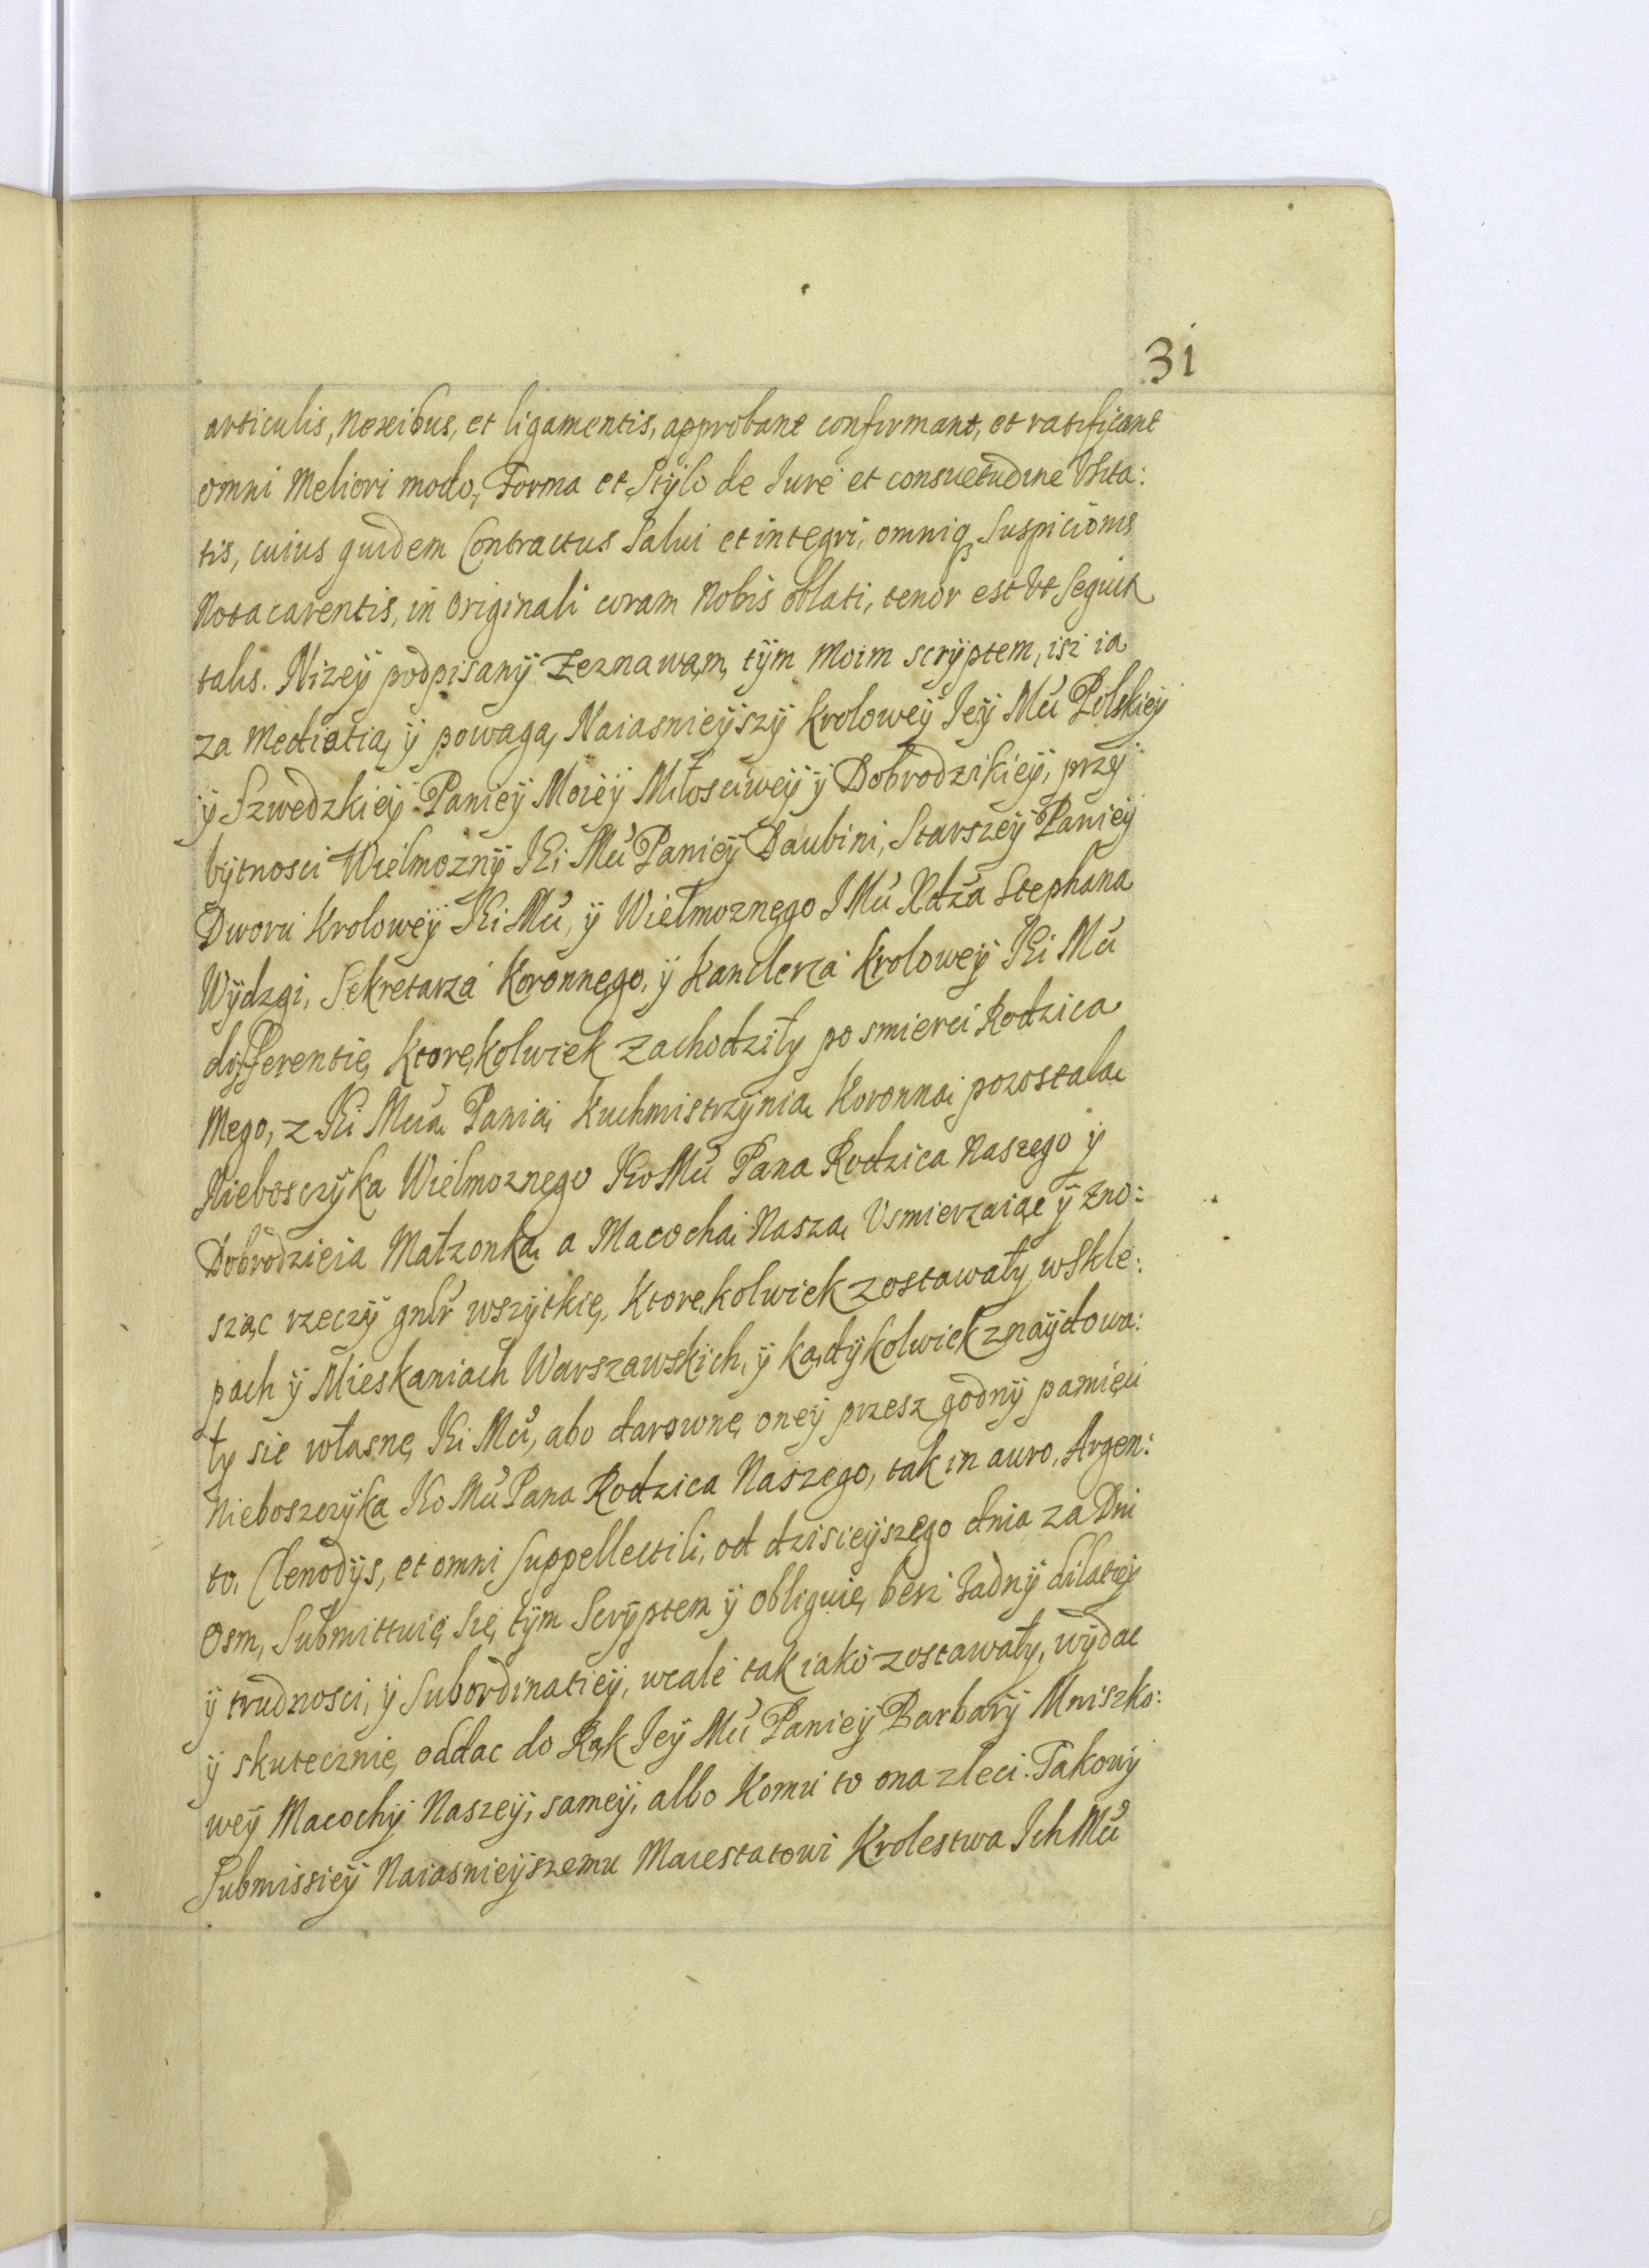 31
articulis, Nexibus, et ligamentis, approbant confirmant, et ratificant
omni Meliori modo, Forma et Stÿlo de Iure et consuetudine Vsita:
tis, cuius quidem Contractus Salui et integri, omniq Suspicionis
Nota carentis, in Originali coram Nobis oblati, tenor est Vt Sequit
talis. Nizeÿ podpisanÿ Zeznawam, tÿm Moim scrÿptem, isz ia
za Mediatią ÿ powagą Naiasnieÿszÿ Kroloweÿ Ieÿ Mci Polskieÿ
ÿ Szwedzkieÿ Panieÿ Moieÿ Miłosciweÿ ÿ Dobrodzikieÿ, przÿ
bÿtnosci Wielmoznÿ IEi Mci Panieÿ Daubini, Starszeÿ Panieÿ
Dworu Kroloweÿ IEi Mci, ÿ Wielmoznego I Mci Xdza Stephana
Wÿdzgi, Sekretarza Koronnego, ÿ Kanclerza Kroloweÿ IEi Mci
differentie, ktorekolwiek zachodziły po smierci Rodzica
Mego, z IEi Mcią Panią Kuchmistrzÿnią Koronną pozostałą
Niebosczÿka Wielmoznego IEo Mci Pana Rodzica Naszego ÿ
Dobrodzieia Małzonką a Macochą Naszą Vsmierzaiąc ÿ Zno:
sząc rzeczÿ gnlr wszÿtkie, ktorekolwiek zostawały w Skle:
pach ÿ Mieskaniach Warszawskich, ÿ kądÿkolwiek znaÿdowa:
ły sie własne, IEi Mci, abo darowne, oneÿ przesz godnÿ pamięci
Nieboszczÿka IEo Mci Pana Rodzica Naszego, tak in auro, Argen:
to, Clenodÿs, et omni Suppellectili, od dzisieÿszego dnia za Dni
Osm, Submittuię Się, tÿm Scrÿptem ÿ obliguię, besz Zadnÿ dilatieÿ
ÿ trudnosci, ÿ Subordinatieÿ, wcale tak iako zostawały, wÿdac
ÿ skutecznie, oddac do Rąk Ieÿ Mci Panieÿ Barbarÿ Mniszko:
weÿ Macochÿ Naszeÿ, sameÿ, albo Komu to ona zleci. Takowÿ
Submissieÿ Naiasnieÿszemu Maiestatowi Krolestwa Ich Mci